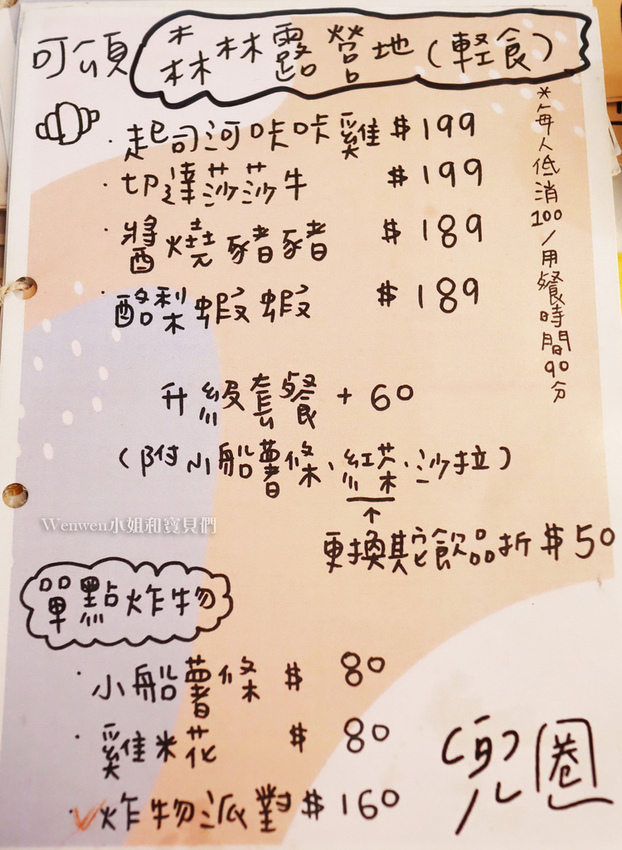 可頌 森林露營地(輕食)
*每人低消100/用餐時間90分
·起司河咔咔雞 $199
·切達莎莎牛 $199
·醬燒豬豬 $189
·酪梨蝦蝦 $189
升級套餐+60
(附小船薯條、紅茶、沙拉)
↑
更換其它飲品折$50
Wenwen小姐和寶貝們
單點炸物
·小船薯條 $ 80
·雞米花 $ 80
·炸物派對 $160
兜圈